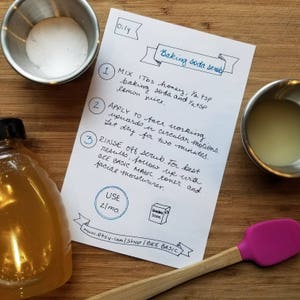 Oily
Baking Soda Scrub
1 MIX 1 Tbs honey, ½ tsp
baking soda and ½ tsp
lemon juice.
2 APPLY to face working
upwards in circular motions.
Let dry for two minutes.
3 RINSE OFF scrub. For best
results follow up with
BEE BASIC MAGIC toner and
facial moisturizer.
USE
2/mo.
www.etsy.com/shop/BEE BASIC